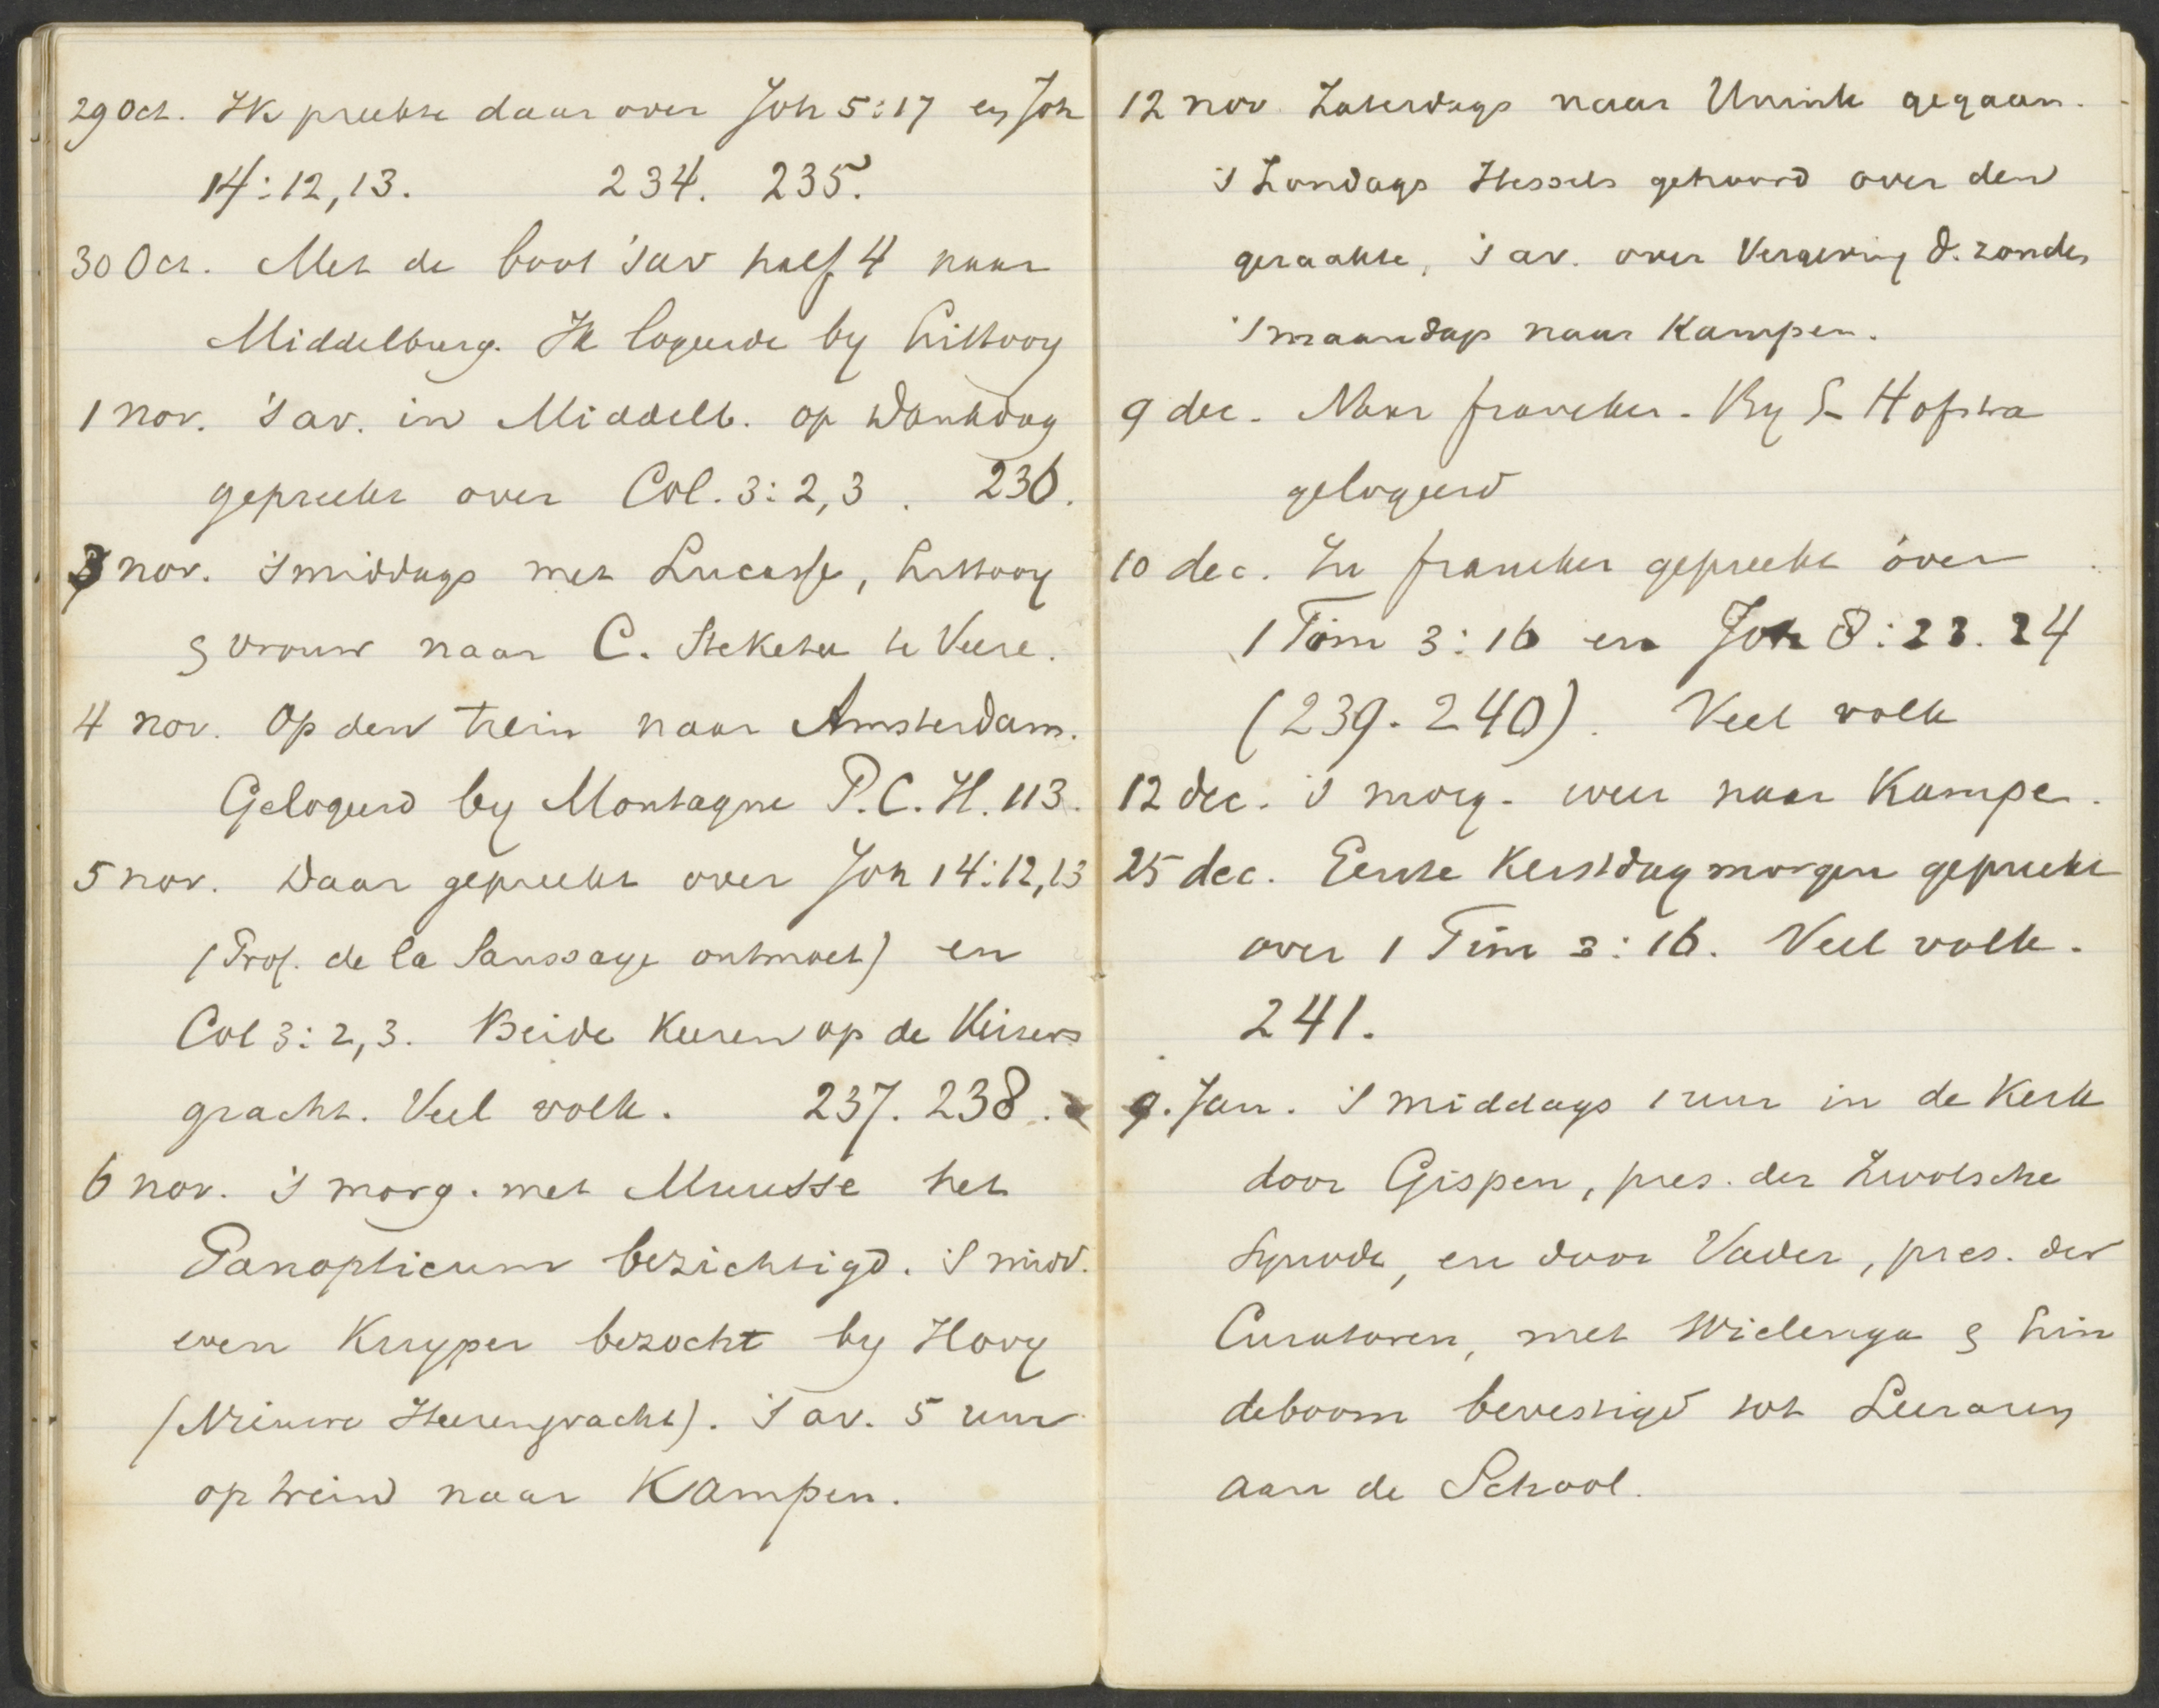 29 Oct. Ik preekte daar over Joh 5:17 en Joh
14:12,13. 234. 235.
30 Oct. Met de boot 's av half 4 naar
Middelburg. Ik logeerde by Littooy
1 nov. 's av. in Middelb. op Dankdag
gepreekt over Col. 3:2,3. 236.
3 nov. 's middags met Lucasse, Littooy
& vrouw naar C. Steketee te Veere.
4 nov. Op den trein naar Amsterdam.
Gelogeerd by Montagne P.C.H. 113.
5 nov. Daar gepreekt over Joh 14:12,13
(Prof. de la Saussaye ontmoet) en
Col 3:2,3. Beide keeren op de Keizers
gracht. Veel volk. 237. 238.
6 nov. 's morg. met Muusse het
Panopticum bezichtigd. 's midd.
even Kuyper bezocht by Hovy
(Nieuwe Heerengracht). 's av. 5 uur
op trein naar Kampen.
12 nov. Zaterdags naar Unink gegaan.
's Zondags Hessels gehoord over den
geraakte, 's av. over Vergeving d. zonden
's maandags naar Kampen.
9 dec. Naar franeker. By S Hofstra
gelogeerd
10 dec. In franeker gepreekt over
1 Tim 3:16 en Joh 8:23.24
(239. 240). Veel volk
12 dec. 's morg. weer naar Kampen.
25 dec. Eerste Kerstdag morgen gepreekt
over 1 Tim 3:16. Veel volk.
241.
9. Jan. 's middags 1 uur in de Kerk
door Gispen, pres. der Zwolsche
Synode, en door Vader, pres. der
Curatoren, met Wielenga & Lin
deboom bevestigd tot Leeraren
aan de School.